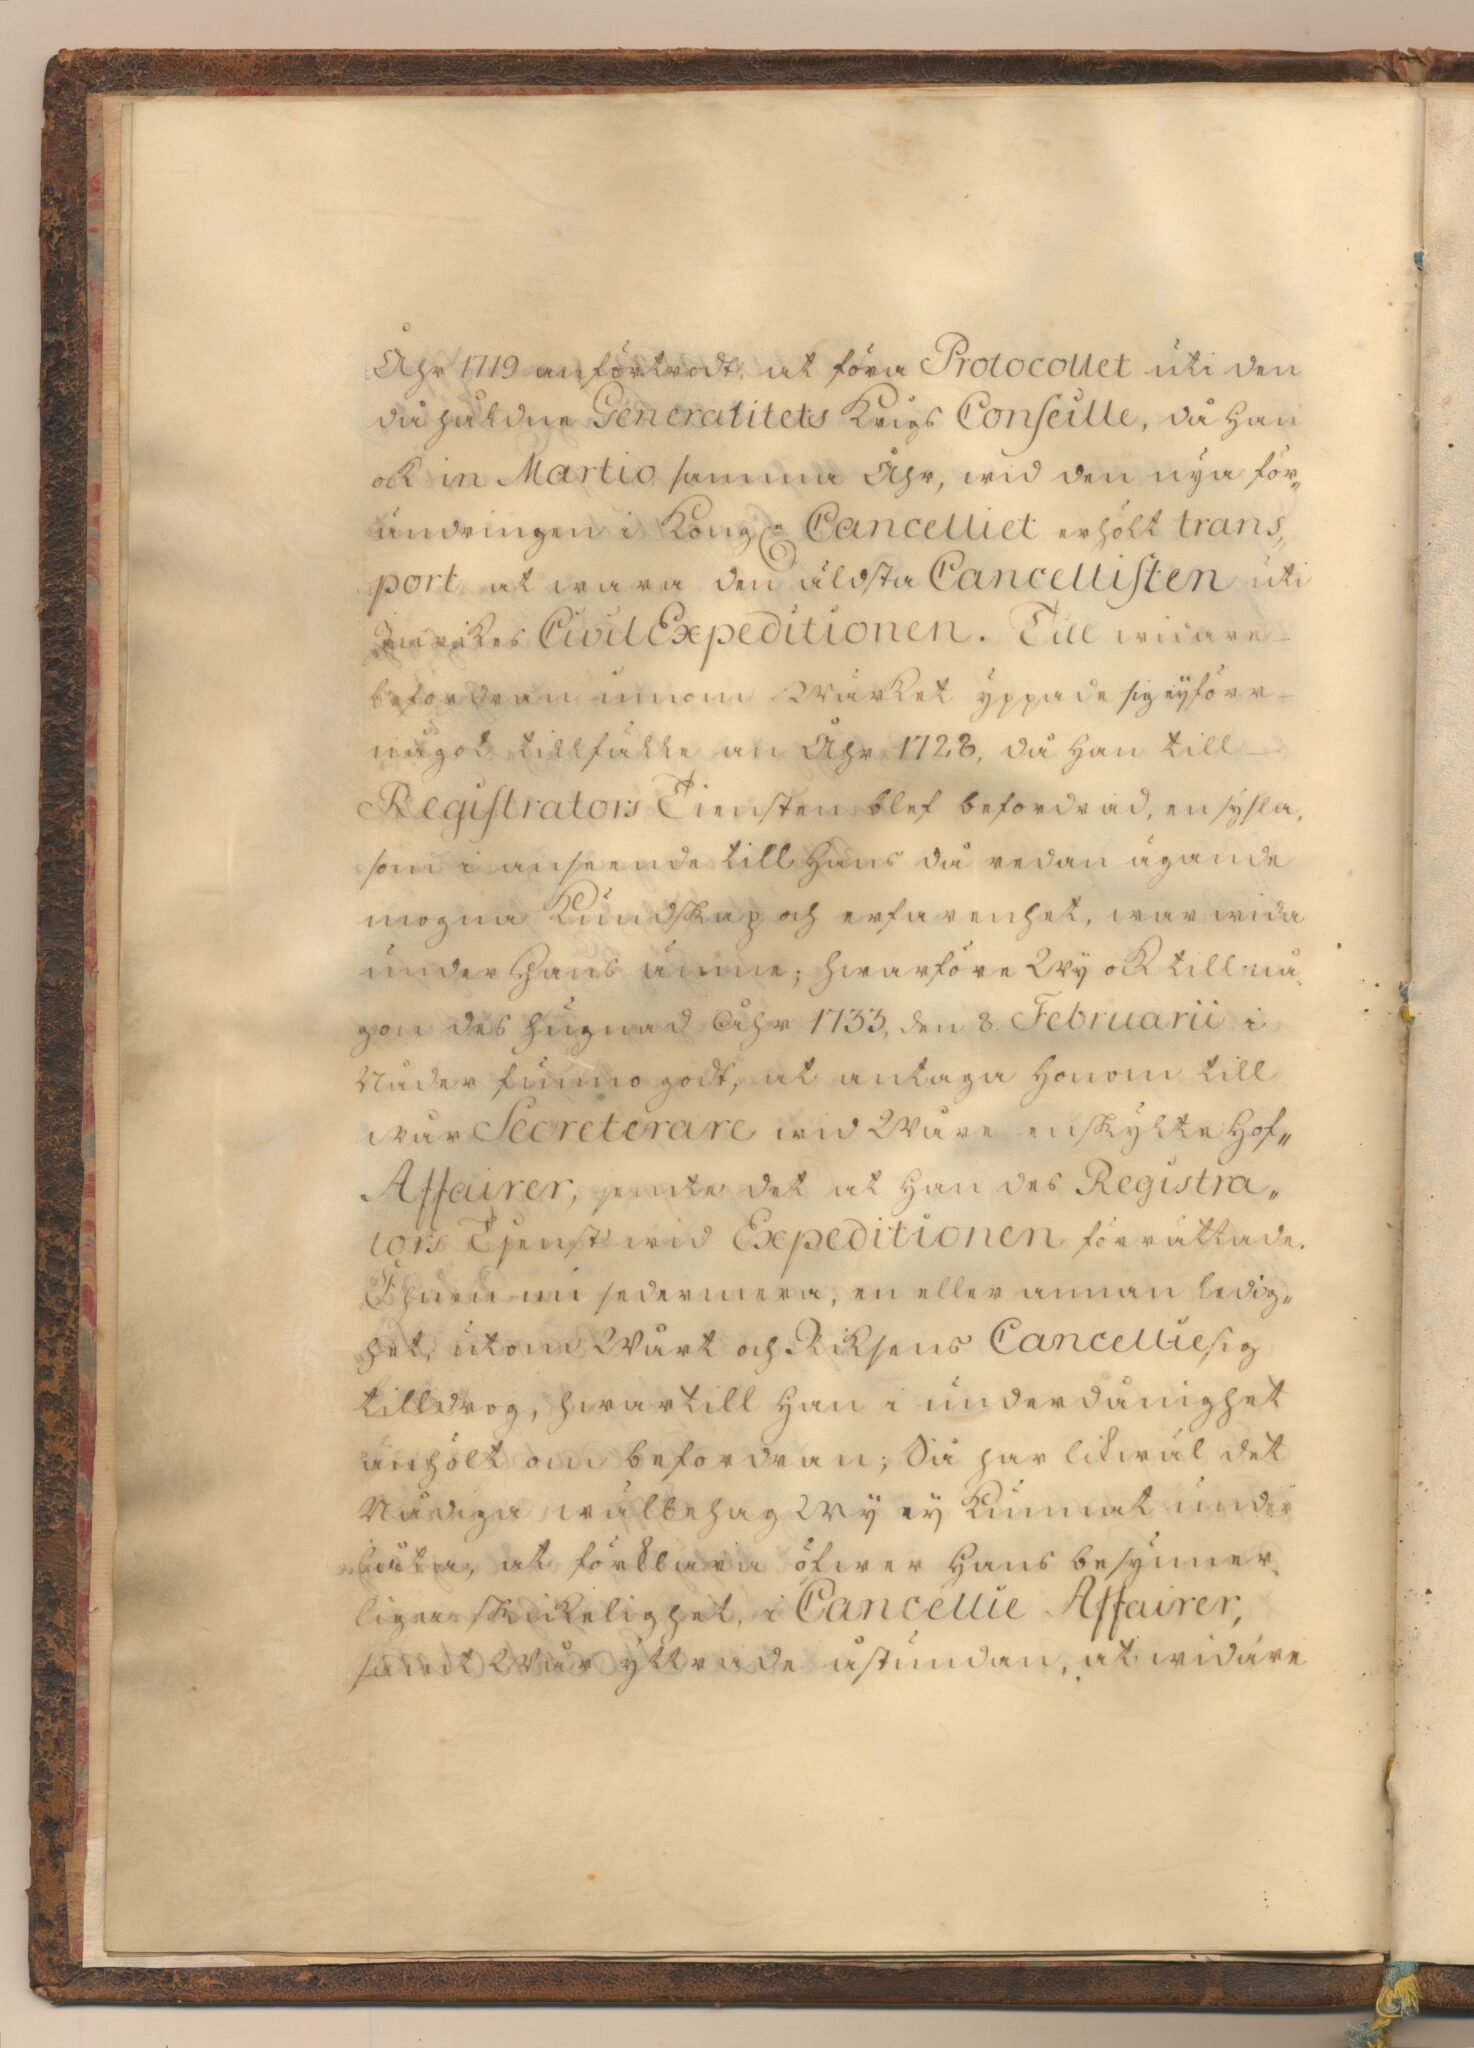 Åhr 1719 anförtrodt, at föra Protocollet uti den
då håldne Generalitets Krigs Conseille, då Han
ock in Martio samma Åhr, wid den nya för„
ändringen i Kongl. Cancelliet erhölt trans„
port at wara den äldsta Cancellisten uti
Inrikes CivilExpeditionen. Till widare
befordran innom Wärket yppade sig ey förr
något tillfälle än Åhr 1728, då Han till
Registrators Tiensten blef befordrad, en sysla,
som i anseende till Hans då redan ägande
mogna Kundskap och erfarenhet, war wida
under Hans ämne; hwarföre Wy ock till nå
gon des hugnad Åhr 1733, den 8 Februarii i
Nåder funno godt, at antaga Honom till
wår Secreterare wid Wåre enskylte Hof„
Affairer, jemte det at Han des Registra„
tors Tjenst wid Expeditionen förrättade.
Ehuru nu sedermera, en eller annan ledig„
het, utom Wårt och Riksens Cancellie sig
tilldrog, hwartill Han i underdånighet
anhölt om befordran; Så har likwäl det
Nådiga wälbehag Wy ey kunnat under
låta, at förklara öfwer Hans besynner
liga skickelighet, i Cancellie Affairer,
samt Wår yttrade åstundan, at widare